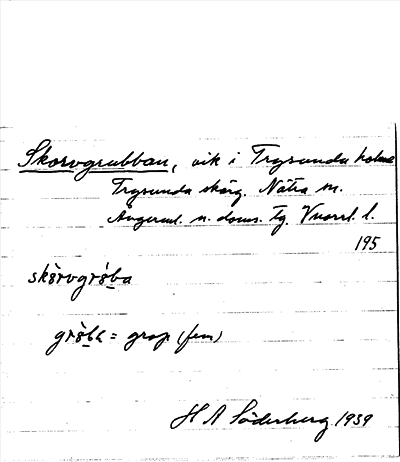 Skorvgrubban, vik i Trysunda holme
Trysunda skärg. Nätra sn.
Ångerml. n. doms. tg. Vnorrl. l.
195
skòrvgròba
gròba = grop (fem)
H A Söderberg 1939